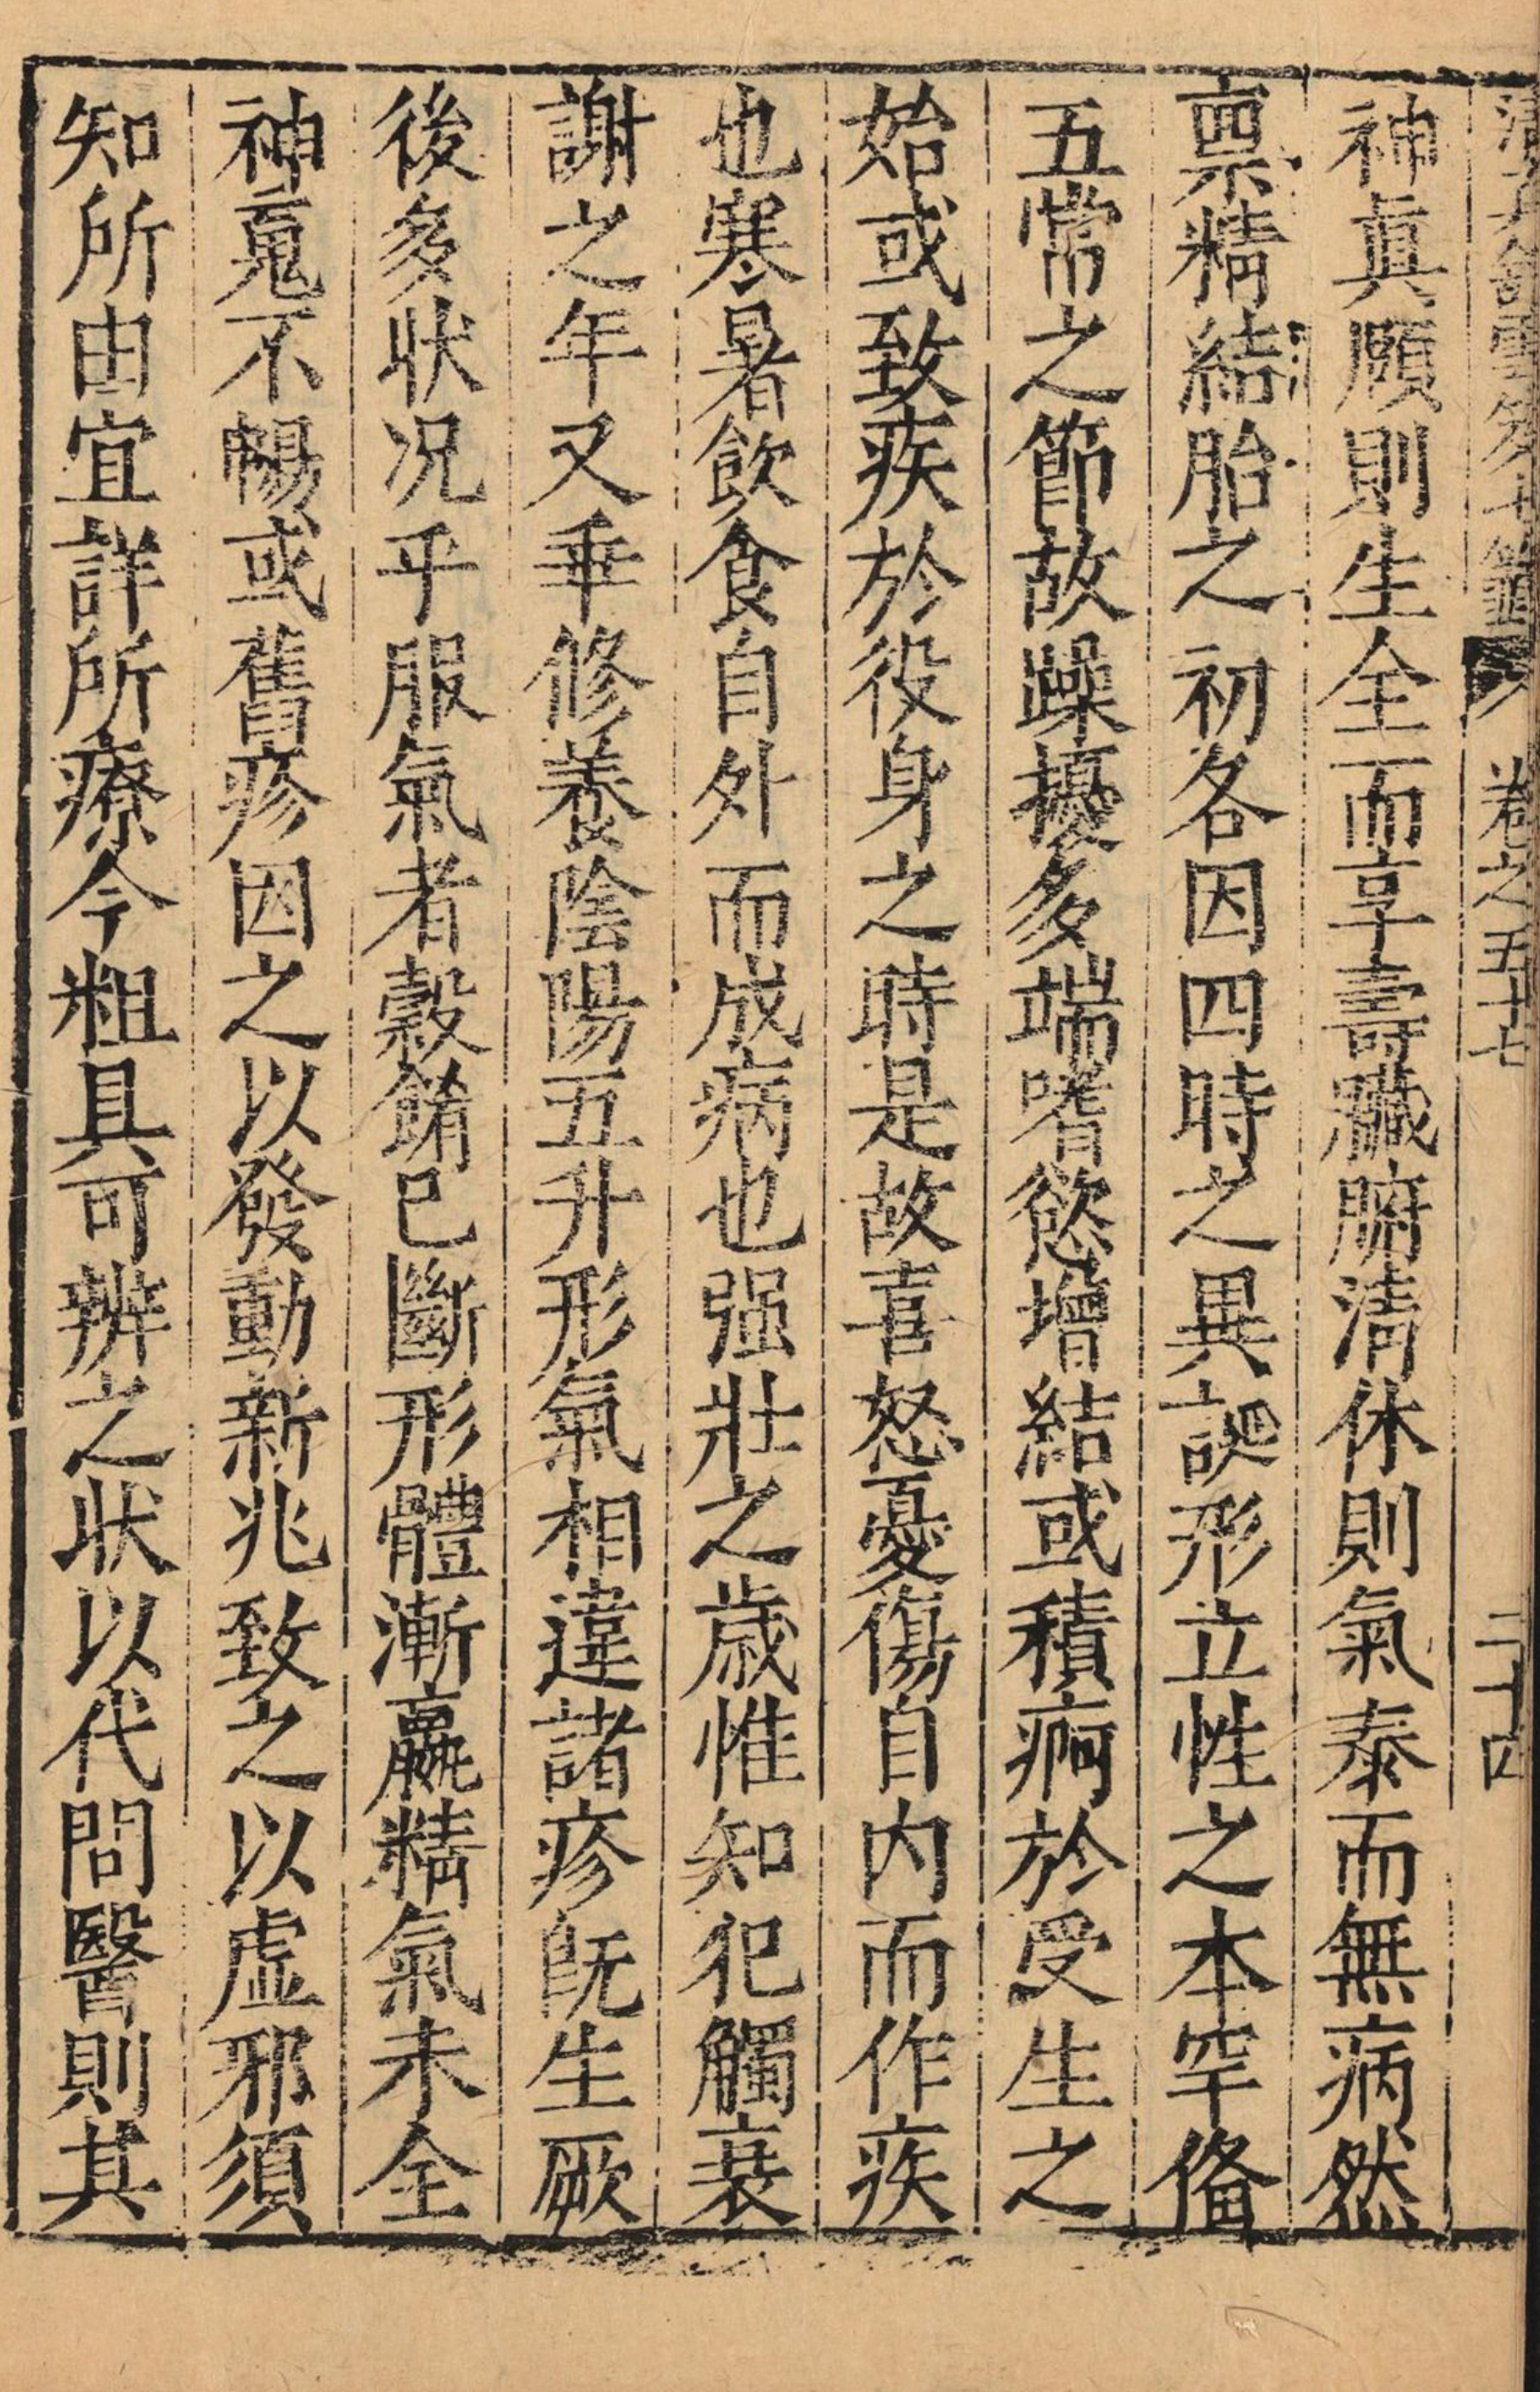 卷之五十七 二十四
神眞願則生全而享壽臟腑清休則氣泰而無病然
禀精結胎之初各因四時之異誕形立性之本罕偹
五常之節故躁擾多端嗜慾增結或積痾於受生之
始或致疾於役身之時是故喜怒憂傷自内而作疾
也寒暑飲食自外而成病也强壯之歲惟知犯觸衰
謝之年又乖修養陰陽互升形氣相違諸疹旣生厥
後多狀况乎服氣者穀餚已斷形體漸羸精氣未全
神䰟不暢或舊疹因之以發動新兆致之以虛邪須
知所由宜詳所療今粗具可辨之狀以代問醫則其